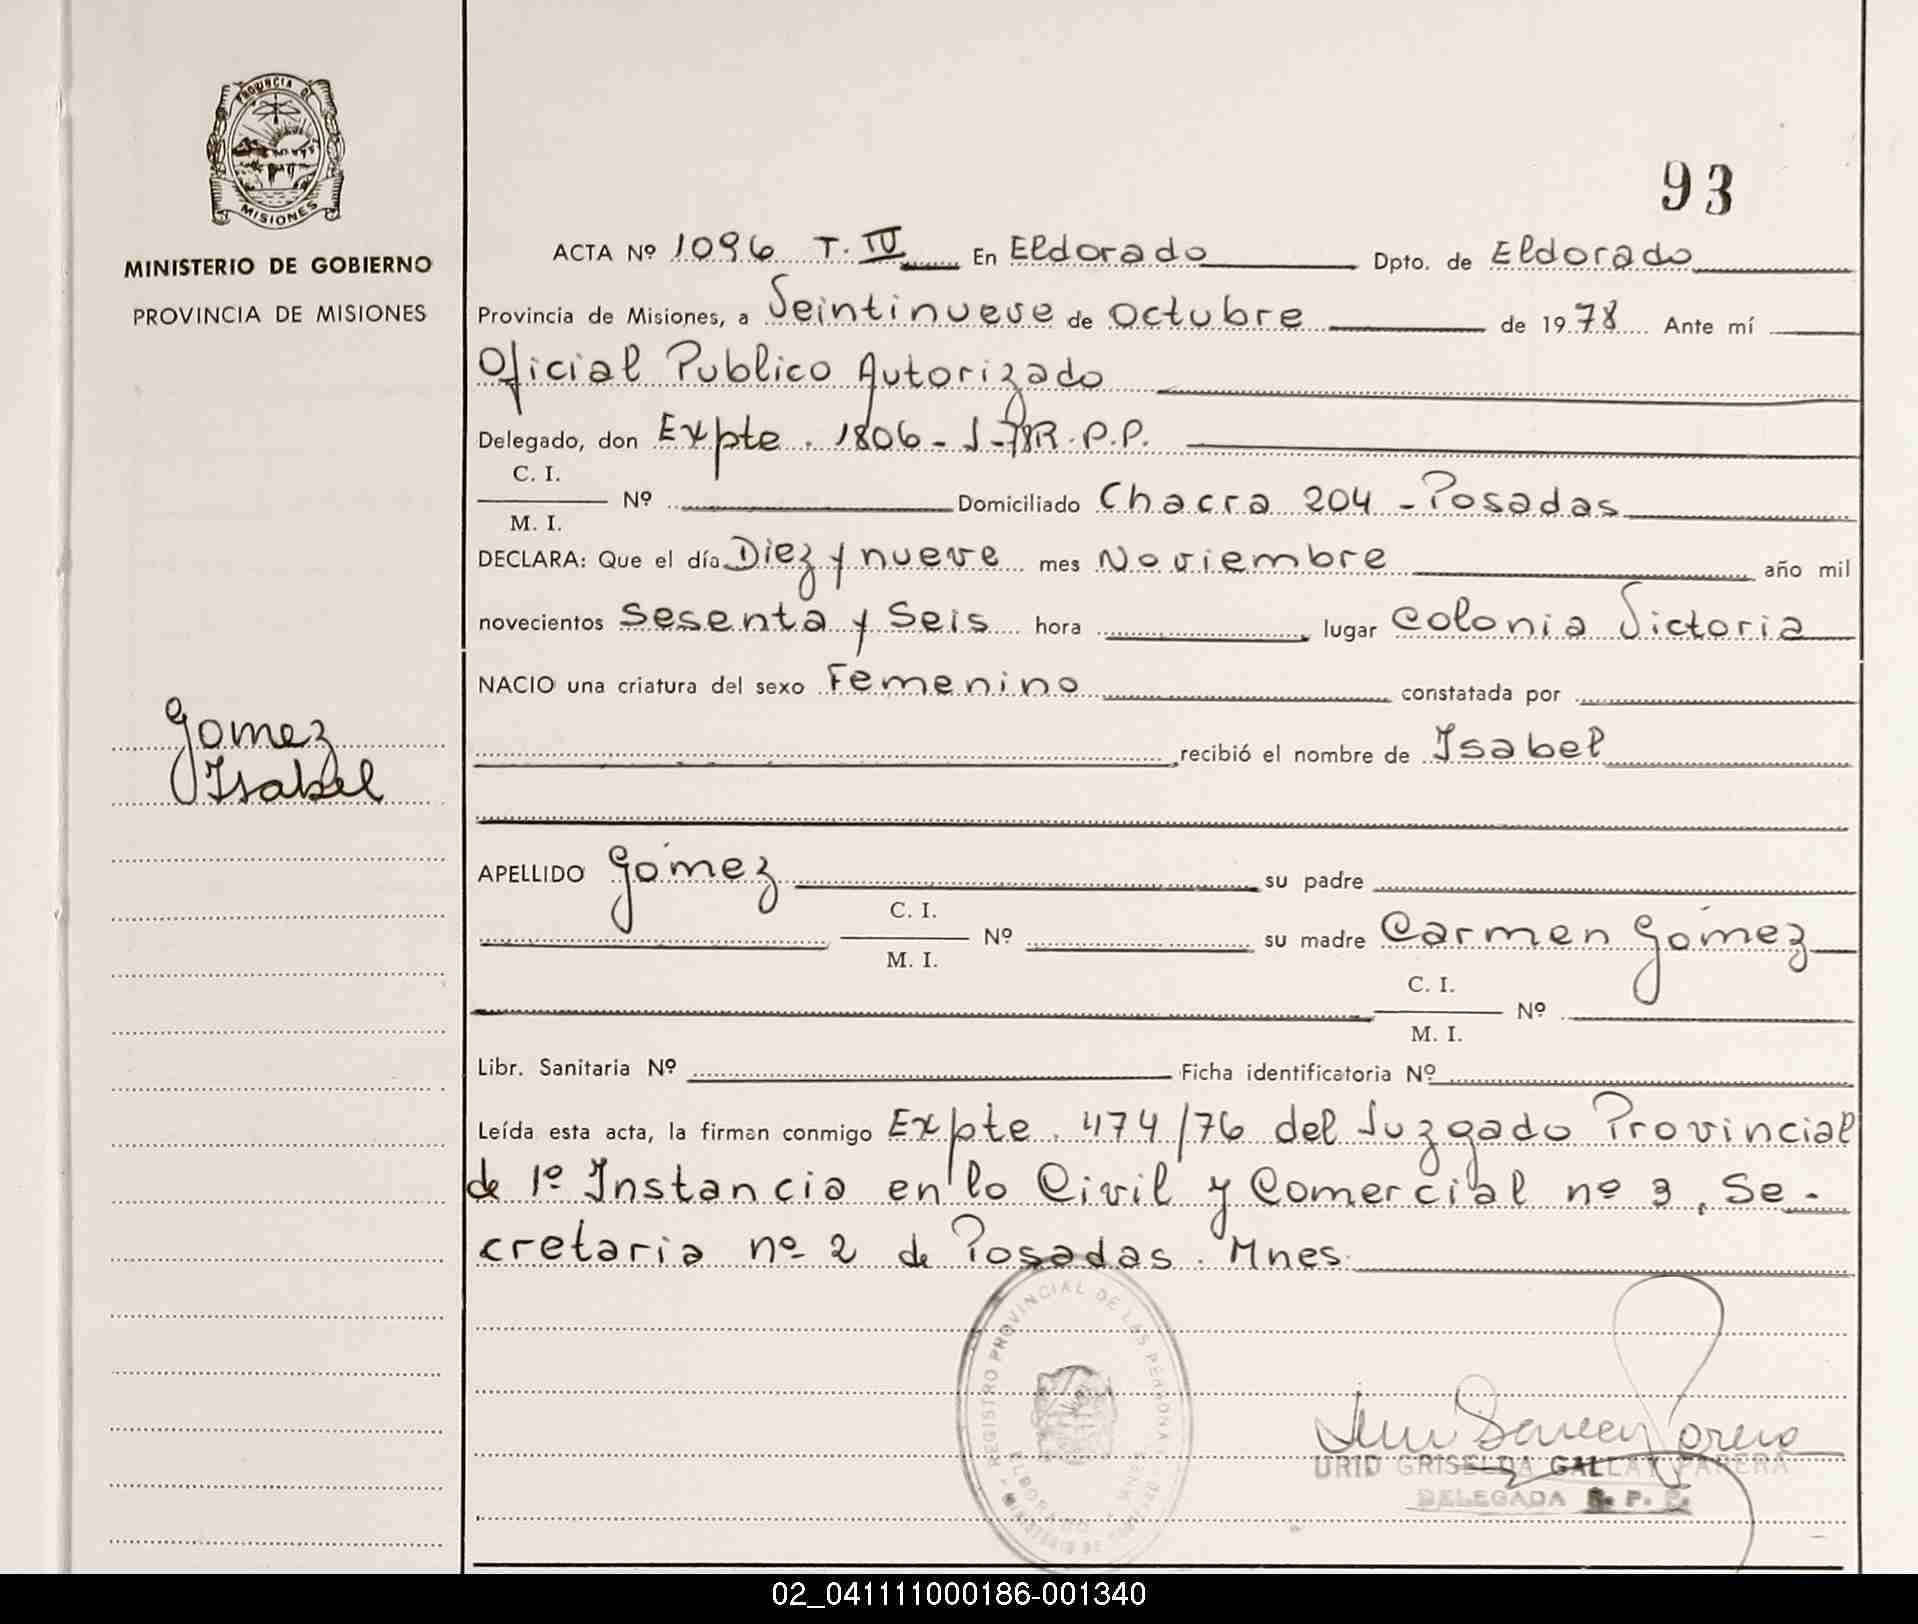 PROVINCIA DE
MISIONES
MINISTERIO DE GOBIERNO
PROVINCIA DE MISIONES
Gomez
Isabel
93
ACTA Nº 1096 T. IV En Eldorado Dpto. de Eldorado
Provincia de Misiones, a Veintinueve de Octubre de 1978 Ante mí
Oficial Publico Autorizado
Delegado, don Expte. 1806-J-78R.P.P.
C. I.
Nº Domiciliado Chacra 204 - Posadas
M. I.
DECLARA: Que el día Diez y nueve mes Noviembre año mil
novecientos Sesenta y Seis hora lugar Colonia Victoria
NACIO una criatura del sexo Femenino constatada por
recibió el nombre de Isabel
APELLIDO Gómez su padre
C. I.
Nº su madre Carmen Gómez
M. I.
C. I.
Nº
M. I.
Libr. Sanitaria Nº Ficha identificatoria Nº
Leída esta acta, la firman conmigo Expte. 474/76 del Juzgado Provincial
de 1º Instancia en lo Civil y Comercial nº 3, Se-
cretaria nº 2 de Posadas. Mnes.
REGISTRO PROVINCIAL DE LAS PERSONAS
URID GRISELDA GALLAY PARERA
DELEGADA R. P. P.
02_041111000186-001340